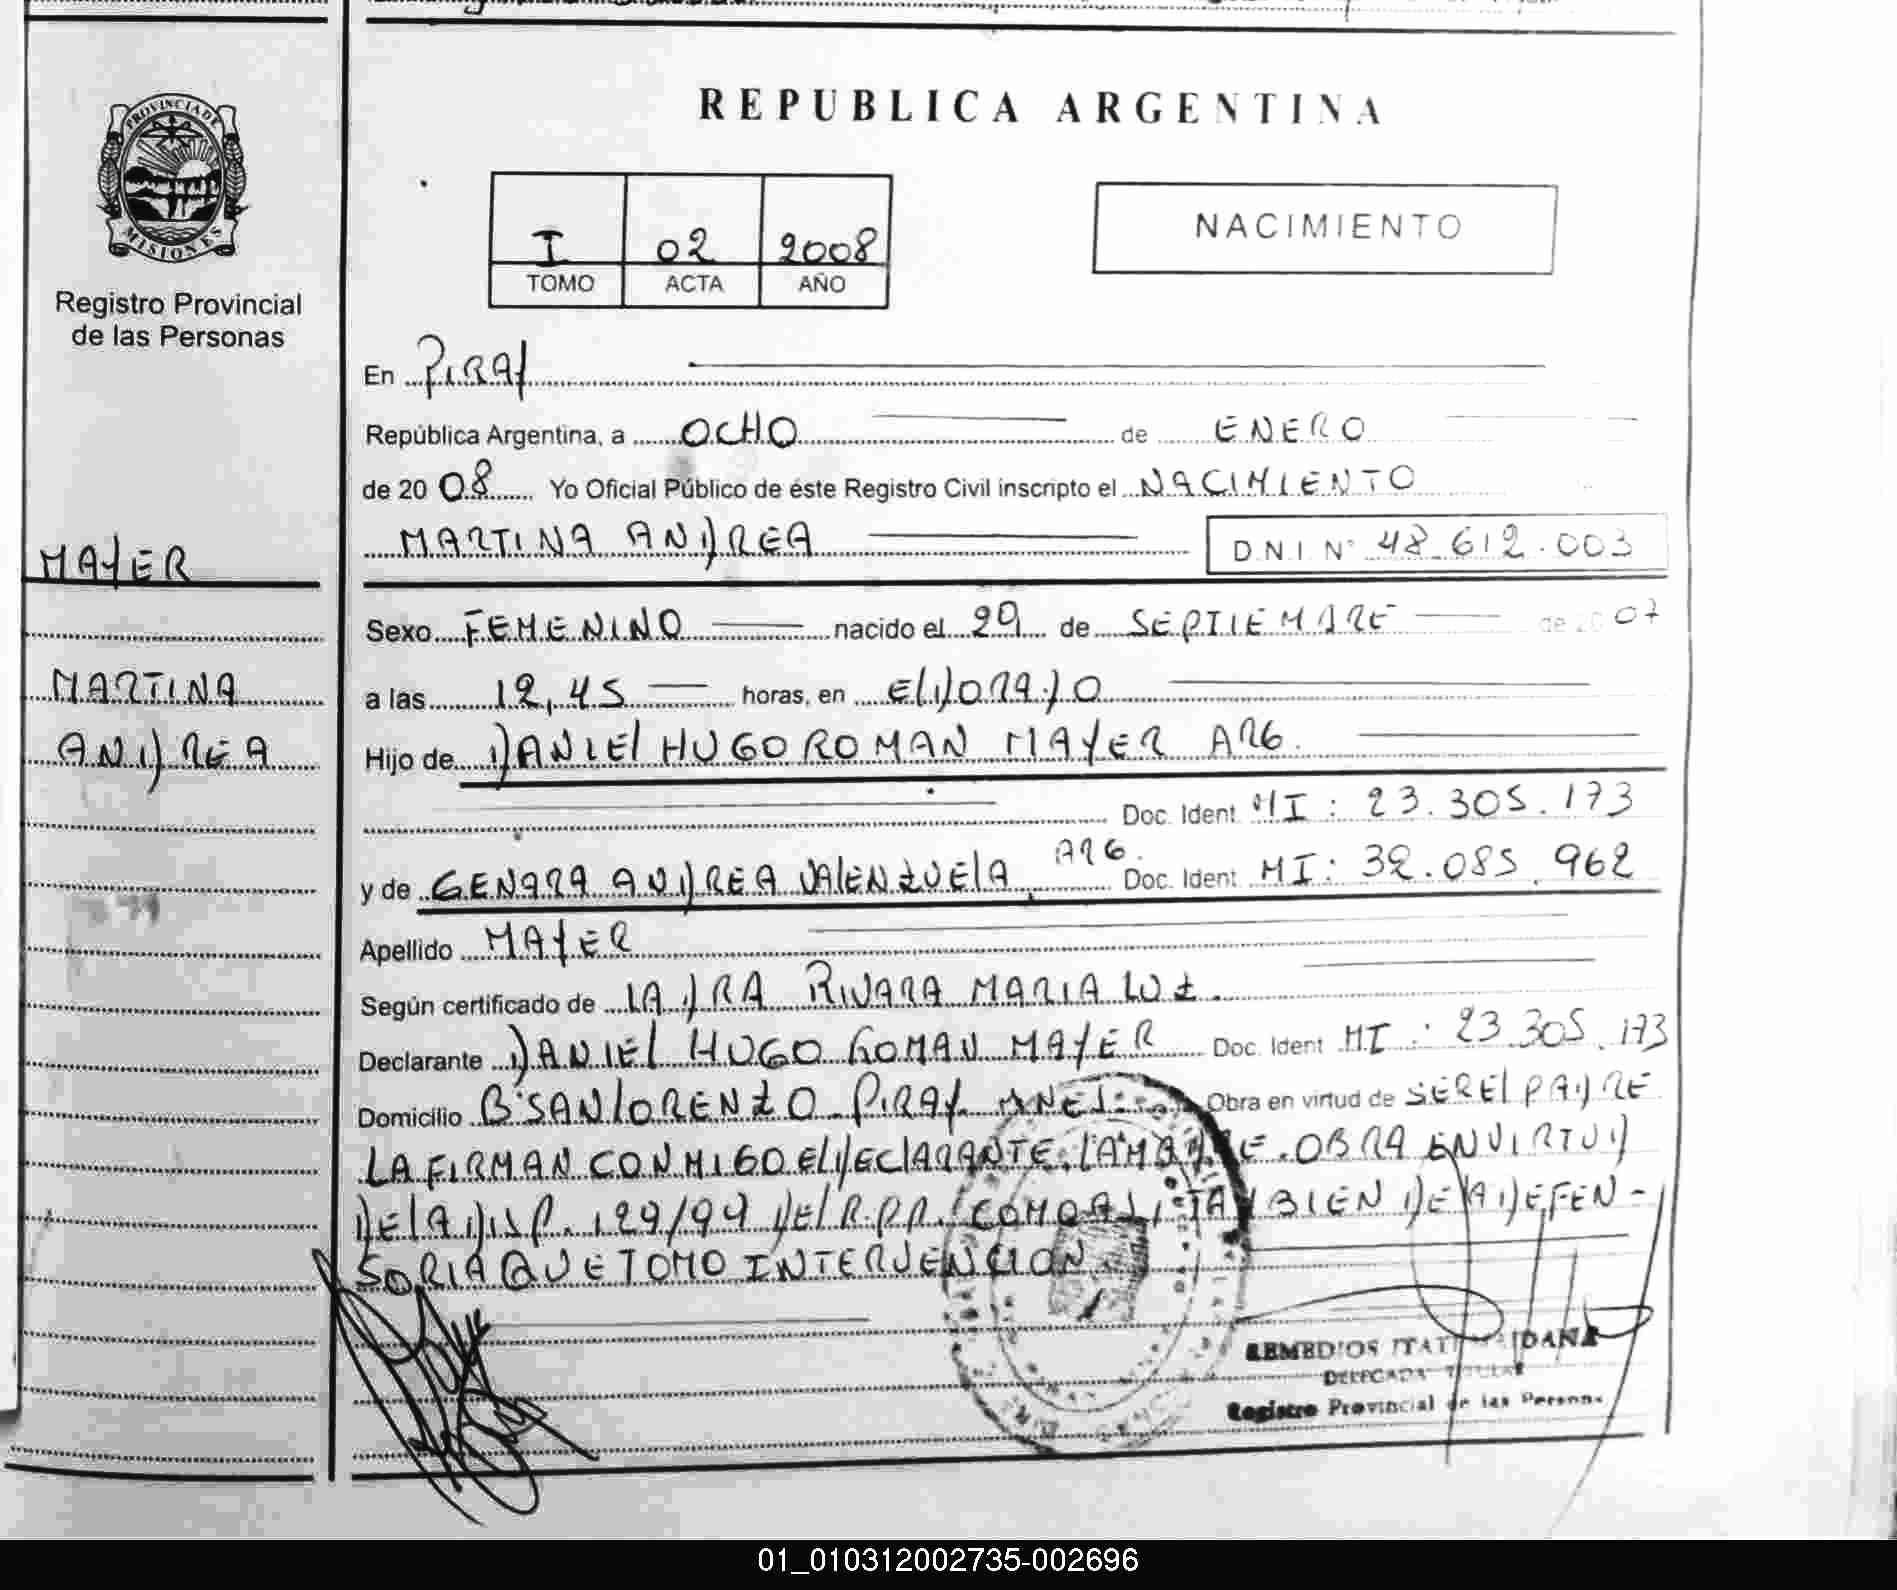 PROVINCIA DE
MISIONES
Registro Provincial
de las Personas
MAYER
MARTINA
ANDREA
REPUBLICA ARGENTINA
I 02 2008
TOMO ACTA AÑO
NACIMIENTO
En PIRAY
República Argentina, a OCHO de ENERO
de 20 08 Yo Oficial Público de éste Registro Civil inscripto el NACIMIENTO
MARTINA ANDREA D.N.I. N° 48.612.003
Sexo FEMENINO nacido el 29 de SEPTIEMBRE de 20 07
a las 12,45 horas, en ELDORADO
Hijo de DANIEL HUGO ROMAN MAYER ARG.
Doc. Ident MI: 23.305.173
y de GENARA ANDREA VALENZUELA ARG. Doc. Ident MI: 32.085.962
Apellido MAYER
Según certificado de LA DRA RIVARA MARIA LUZ.
Declarante DANIEL HUGO ROMAN MAYER Doc. Ident MI: 23.305.173
Domicilio B° SAN LORENZO PIRAY MNES. Obra en virtud de SER EL PADRE
LA FIRMAN CONMIGO EL DECLARANTE. LA MADRE. OBRA EN VIRTUD
DE LA DISP. 129/94 DEL R.P.P. COMO ASI TAMBIEN DE LA DEFEN-
SORIA QUE TOMO INTERVENCION
REMEDIOS
DELEGADA TITULAR
Registro Provincial de las Personas
01_010312002735-002696